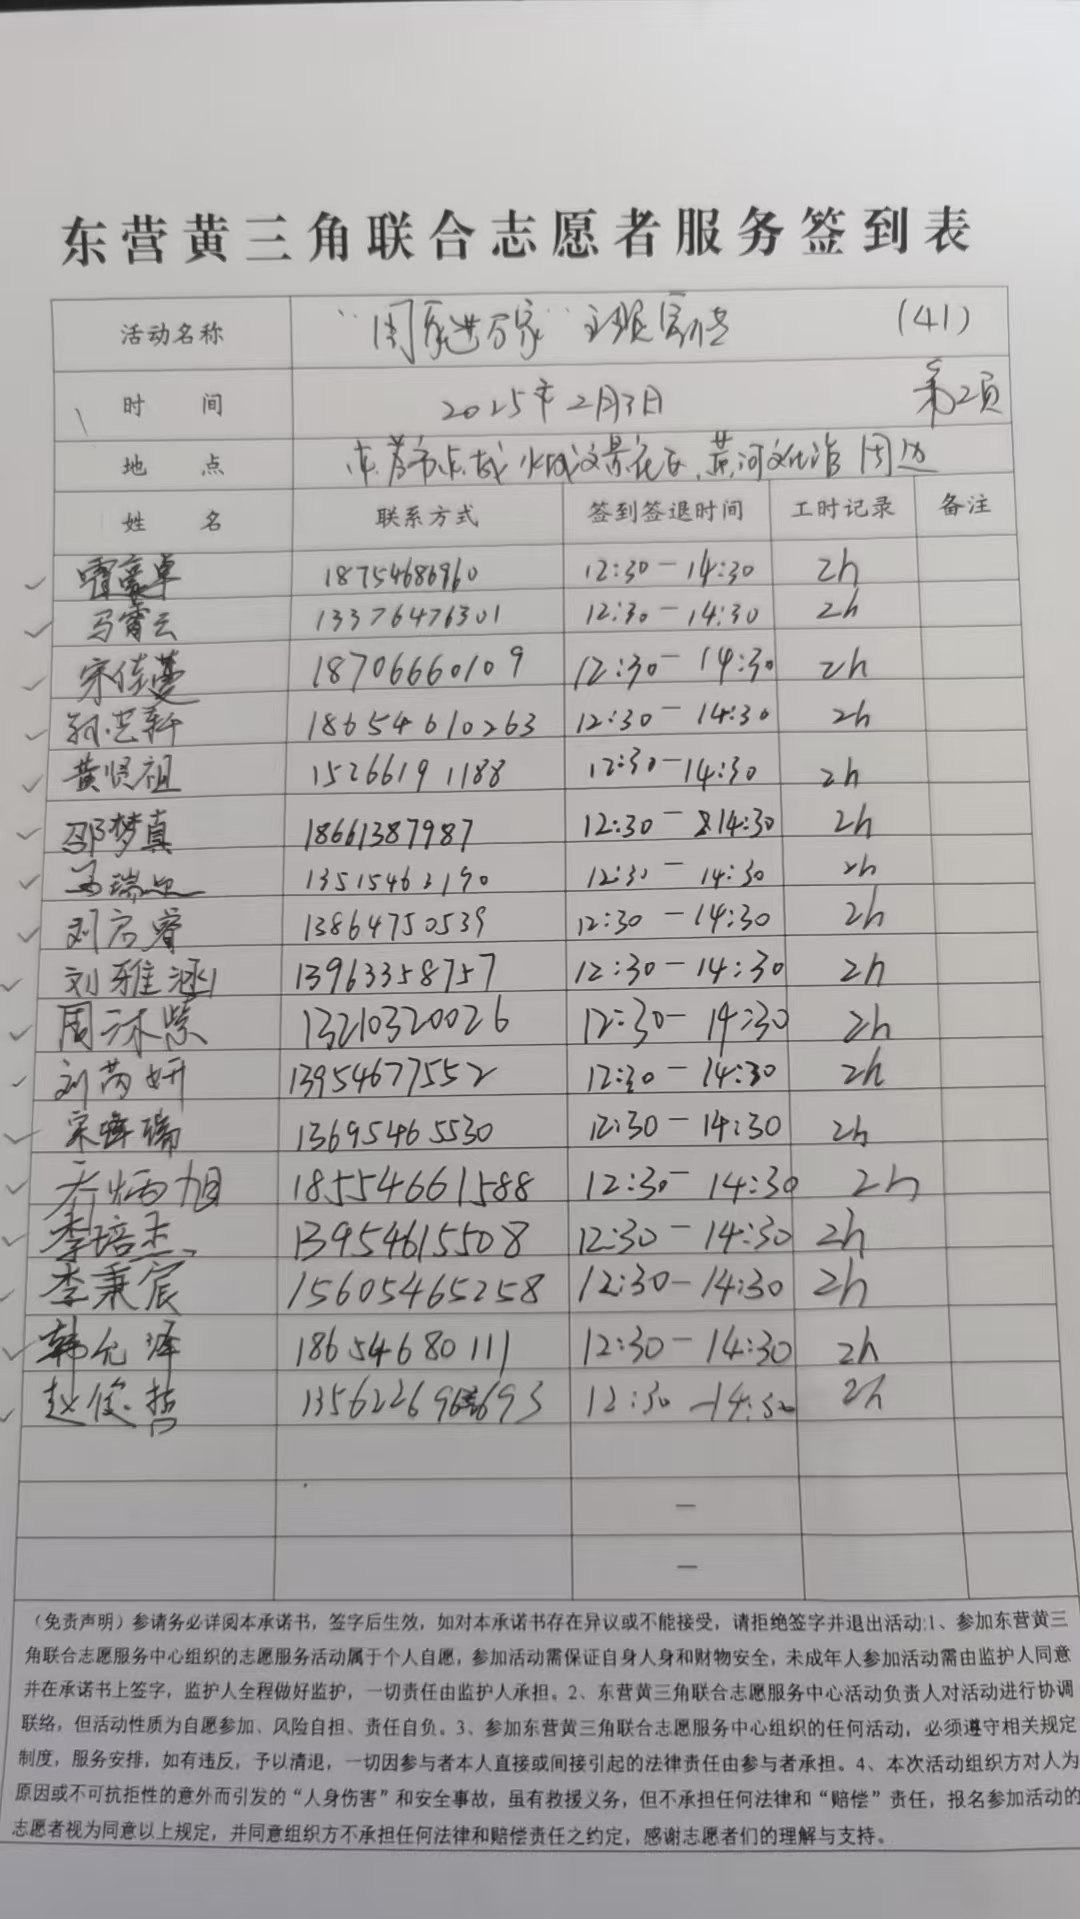 东营黄三角联合志愿者服务签到表
活动名称 进万家" 主题宣传 (41)
时 间 2025年2月3日 第2页
地 点 黄河文化馆周边
姓 名 联系方式 签到签退时间 工时记录 备注
18754686960 12:30-14:30 2h
马睿云 13376476301 12:30-14:30 2h
宋佳蔓 18706660109 12:30-14:30 2h
18654610263 12:30-14:30 2h
黄贤祖 15266191188 12:30-14:30 2h
邵梦真 18661387987 12:30-14:30 2h
马瑞 13515463190 12:30-14:30 2h
刘启睿 13864750539 12:30-14:30 2h
刘雅涵 13963358757 12:30-14:30 2h
周沐紫 13210320026 12:30-14:30 2h
刘芮妍 13954677552 12:30-14:30 2h
宋 瑞 13695465530 12:30-14:30 2h
炳旭 18554661588 12:30-14:30 2h
李培杰 13954615508 12:30-14:30 2h
李秉宸 15605465258 12:30-14:30 2h
韩允泽 18654680111 12:30-14:30 2h
赵俊哲 12:30-14:30 2h
—
—
（免责声明）参请务必详阅本承诺书，签字后生效，如对本承诺书存在异议或不能接受，请拒绝签字并退出活动:1、参加东营黄三
角联合志愿服务中心组织的志愿服务活动属于个人自愿，参加活动需保证自身人身和财物安全，未成年人参加活动需由监护人同意
并在承诺书上签字，监护人全程做好监护，一切责任由监护人承担。2、东营黄三角联合志愿服务中心活动负责人对活动进行协调
联络，但活动性质为自愿参加、风险自担、责任自负。3、参加东营黄三角联合志愿服务中心组织的任何活动，必须遵守相关规定
制度，服务安排，如有违反，予以清退，一切因参与者本人直接或间接引起的法律责任由参与者承担。4、本次活动组织方对人为
原因或不可抗拒性的意外而引发的“人身伤害”和安全事故，虽有救援义务，但不承担任何法律和“赔偿”责任，报名参加活动的
志愿者视为同意以上规定，并同意组织方不承担任何法律和赔偿责任之约定，感谢志愿者们的理解与支持。